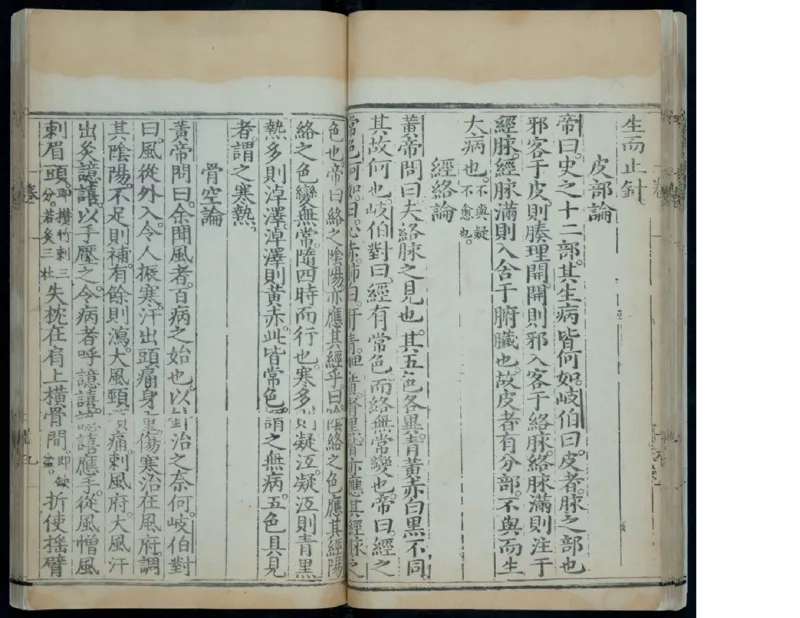 生而止針
皮部論
帝曰史之十二部其生病皆何如岐伯曰皮者脉之部也
邪客于皮則腠理開開則邪入客于絡脉絡脉滿則注于
經脉經脉滿則入舍于腑臟也故皮者有分部不與而生
大病也不與疑不愈也
經絡論
黃帝問曰夫絡脉之見也其五色各異青黃赤白黑不同
其故何也岐伯對曰經有常色而絡無常變也帝曰經之
常色何如曰心赤肺白肝青脾黃腎黑皆亦應其經脉之
色也帝曰絡之陰陽亦應其經乎曰陰絡之色應其經陽
絡之色變無常隨四時而行也寒多則凝泣凝泣則青黑
熱多則淖澤淖澤則黃赤此皆常色謂之無病五色具見
者謂之寒熱
骨空論
黃帝問曰余聞風者百病之始也以針治之奈何岐伯對
曰風從外入令人振寒汗出頭痛身重傷寒治在風府調
其陰陽不足則補有餘則瀉大風頸項痛刺風府大風汗
出灸譩譆以手壓之令病者呼譩譆譩譆應手從風憎風
刺眉頭即攢竹刺三分若灸三壯失枕在肩上橫骨間即缺盆折使搖臂